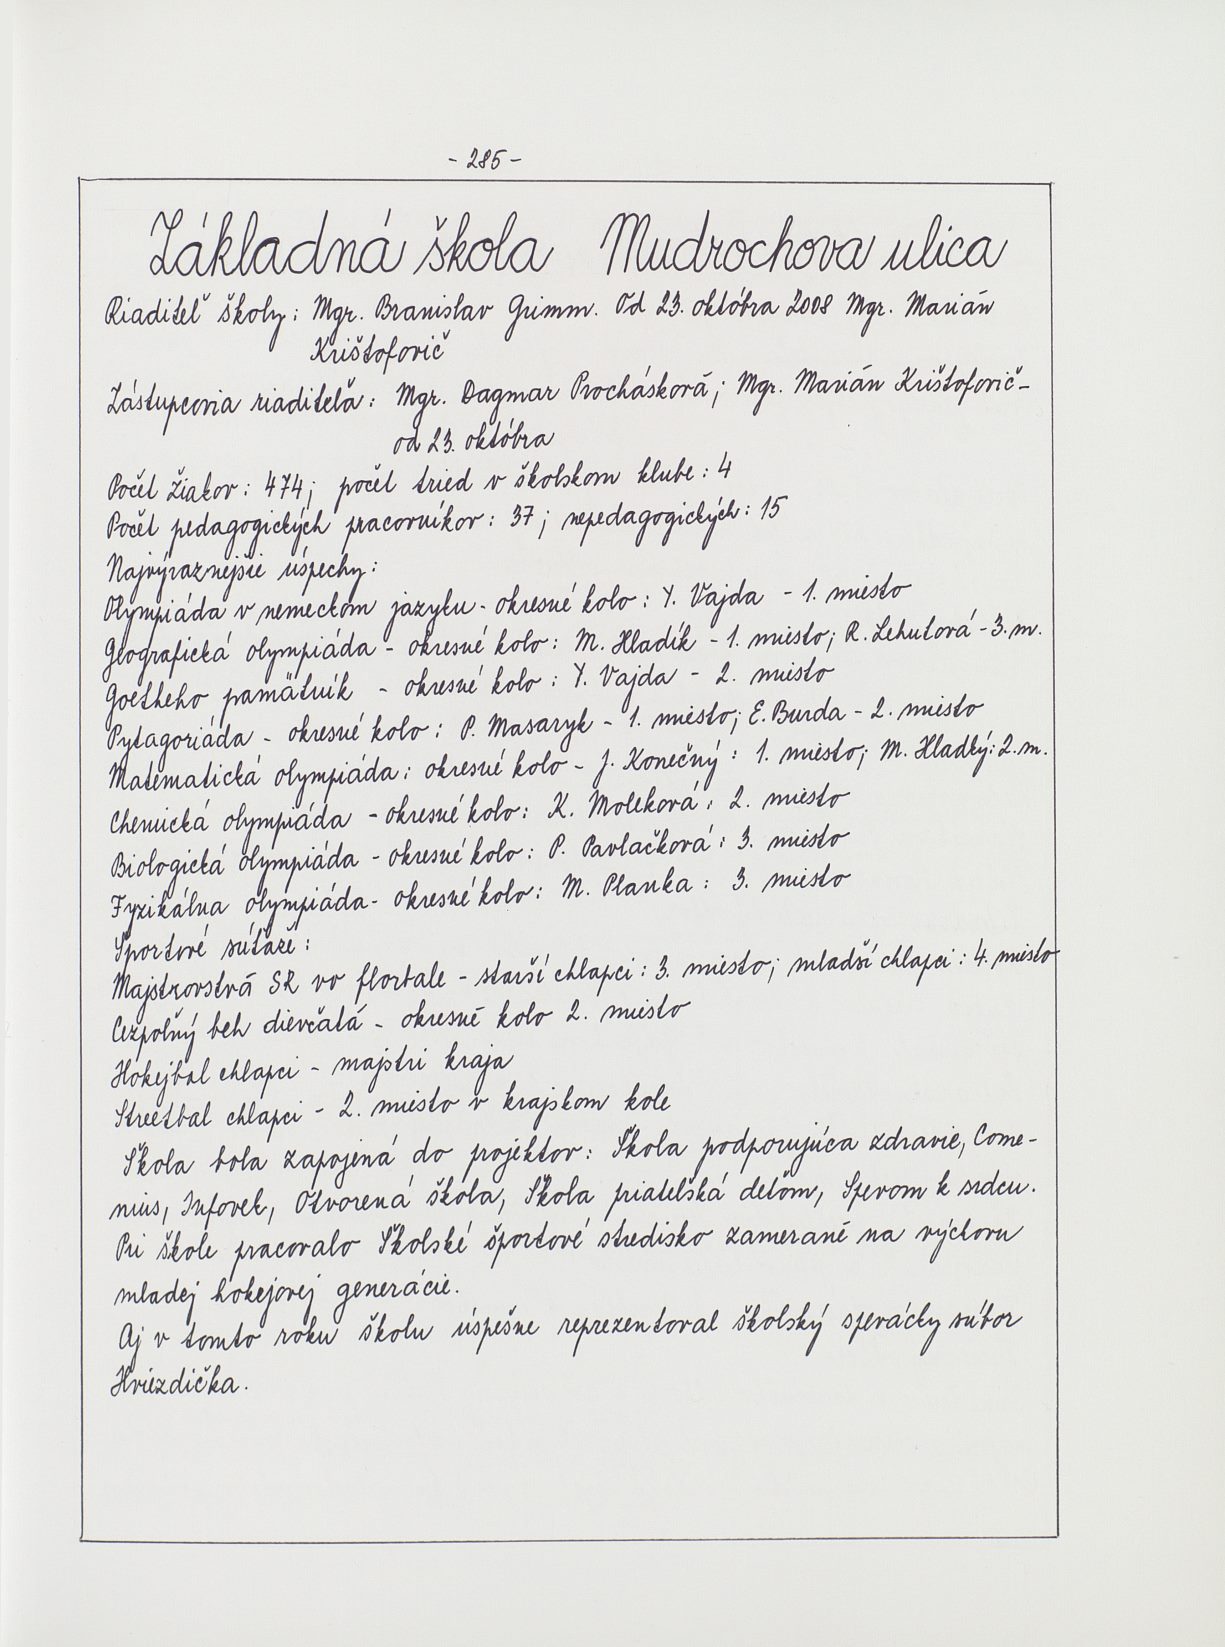 - 285 -
Základná škola Mudrochova ulica
Riaditeľ školy: Mgr. Branislav Grimm. Od 23. októbra 2008 Mgr. Marián
Krištofovič
Zástupcovia riaditeľa: Mgr. Dagmar Prochásková; Mgr. Marián Krištofovič-
od 23. októbra
Počet žiakov: 474; počet tried v školskom klube: 4
Počet pedagogických pracovníkov: 37; nepedagogických: 15
Najvýraznejšie úspechy:
Olympiáda v nemeckom jazyku - okresné kolo: Y. Vajda - 1. miesto
Geografická olympiáda - okresné kolo: M. Hladík - 1. miesto; R. Lehutová - 3. m.
Goetheho pamätník - okresné kolo: Y. Vajda - 2. miesto
Pytagoriáda - okresné kolo: P. Masaryk - 1. miesto; E. Burda - 2. miesto
Matematická olympiáda: okresné kolo - J. Konečný: 1. miesto; M. Hladký: 2. m.
Chemická olympiáda - okresné kolo: K. Moleková: 2. miesto
Biologická olympiáda - okresné kolo: P. Pavlačková: 3. miesto
Fyzikálna olympiáda - okresné kolo: M. Planka: 3. miesto
Športové súťaže:
Majstrovstvá SR vo florbale - starší chlapci: 3. miesto; mladší chlapci: 4. miesto
Cezpoľný beh dievčatá - okresné kolo 2. miesto
Hokejbal chlapci - majstri kraja
Streetbal chlapci - 2. miesto v krajskom kole
Škola bola zapojená do projektov: Škola podporujúca zdravie, Come-
nius, Infovek, Otvorená škola, Škola priateľská deťom, Spevom k srdcu.
Pri škole pracovalo Školské športové stredisko zamerané na výchovu
mladej hokejovej generácie.
Aj v tomto roku školu úspešne reprezentoval školský spevácky súbor
Hviezdička.